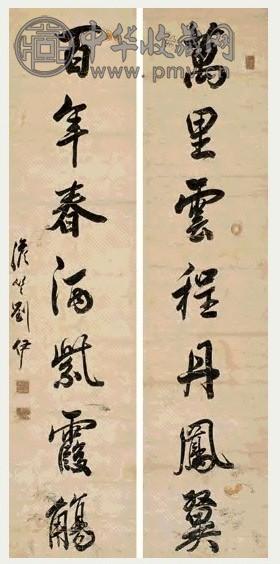 中华收藏网
萬里雲程丹鳳翼
百年春酒紫霞觴
劉伊